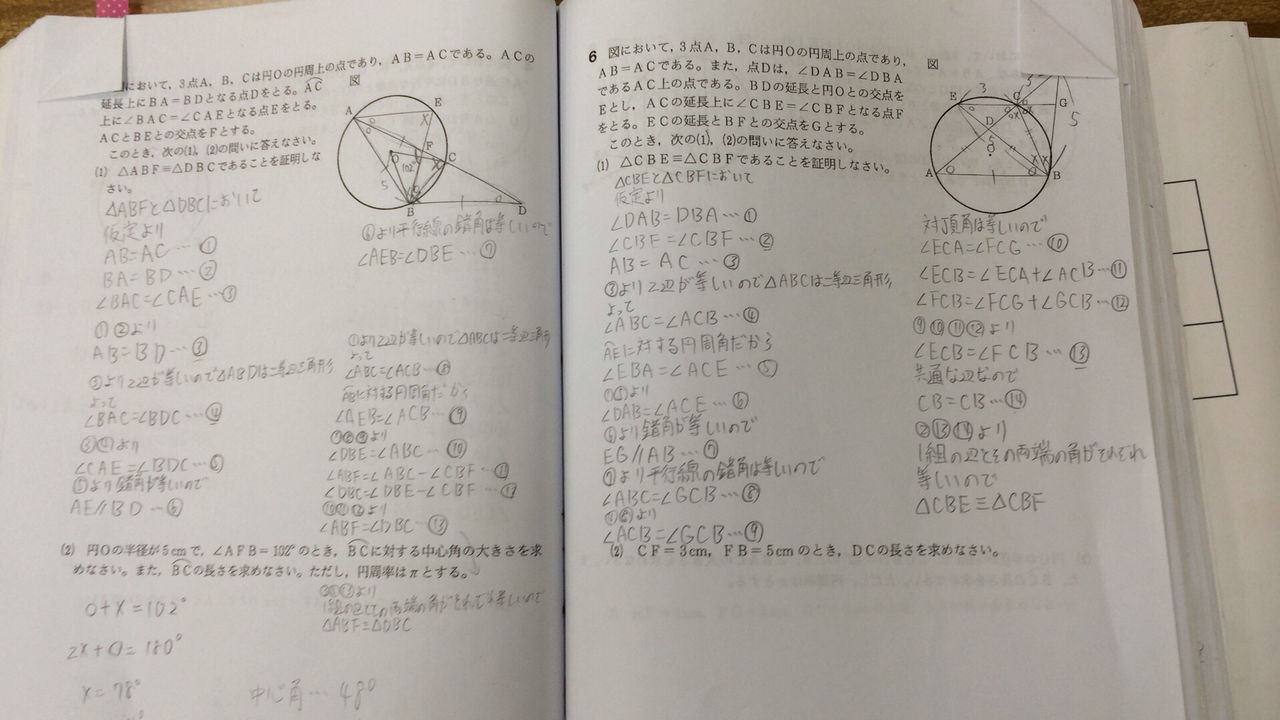 において，3点A，B，Cは円Oの円周上の点であり，AB＝ACである。ACの
延長上にBA＝BDとなる点Dをとる。AC
上に∠BAC＝∠CAEとなる点Eをとる。
ACとBEとの交点をFとする。
このとき，次の(1)，(2)の問いに答えなさい。
(1) △ABF≡△DBCであることを証明しな
さい。
図
A
E
F
C
O
102°
5
B
D
△ABFと△DBCにおいて
仮定より
AB=AC…①
BA=BD…②
∠BAC=∠CAE…③
①②より
AB=BD…③
③より2辺が等しいので△ABDは二等辺三角形
よって
∠BAC=∠BDC…④
③④より
∠CAE=∠BDC…⑤
⑤より錯角が等しいので
AE//BD…⑥
⑥より平行線の錯角は等しいので
∠AEB=∠DBE…⑦
①より2辺が等しいので△ABCは二等辺三角形
よって
∠ABC=∠ACB…⑧
に対する円周角だから
∠AEB=∠ACB…⑨
⑦⑧⑨より
∠DBE=∠ABC…⑩
∠ABF=∠ABC-∠CBF…⑪
∠DBC=∠DBE-∠CBF…⑫
⑩⑪⑫より
∠ABF=∠DBC…⑬
(2) 円Oの半径が5cmで，∠AFB＝102°のとき，BCに対する中心角の大きさを求
めなさい。また，BCの長さを求めなさい。ただし，円周率はπとする。
1組の辺とその両端の角がそれぞれ等しいので
△ABF≡△DBC
○+×=102°
2×+○=180°
×=78°
中心角…48°
6 図において，3点A，B，Cは円Oの円周上の点であり，
AB＝ACである。また，点Dは，∠DAB＝∠DBA
であるAC上の点である。BDの延長と円Oとの交点を
Eとし，ACの延長上に∠CBE＝∠CBFとなる点F
をとる。ECの延長とBFとの交点をGとする。
このとき，次の(1)，(2)の問いに答えなさい。
(1) △CBE≡△CBFであることを証明しなさい。
図
E
3
C
G
D
5
O
A
B
△CBEと△CBFにおいて
仮定より
∠DAB=DBA…①
∠CBE=∠CBF…②
AB=AC…③
③より2辺が等しいので△ABCは二等辺三角形
よって
∠ABC=∠ACB…④
AEに対する円周角だから
∠EBA=∠ACE…⑤
①⑤より
∠DAB=∠ACE…⑥
⑥より錯角が等しいので
EG//AB…⑦
⑦より平行線の錯角は等しいので
∠ABC=∠GCB…⑧
④⑧より
∠ACB=∠GCB…⑨
対頂角は等しいので
∠ECA=∠FCG…⑩
∠ECB=∠ECA+∠ACB…⑪
∠FCB=∠FCG+∠GCB…⑫
⑨⑩⑪⑫より
∠ECB=∠FCB…⑬
共通な辺なので
CB=CB…⑭
②⑬⑭より
1組の辺とその両端の角がそれぞれ
等しいので
△CBE≡△CBF
(2) CF＝3cm，FB＝5cmのとき，DCの長さを求めなさい。